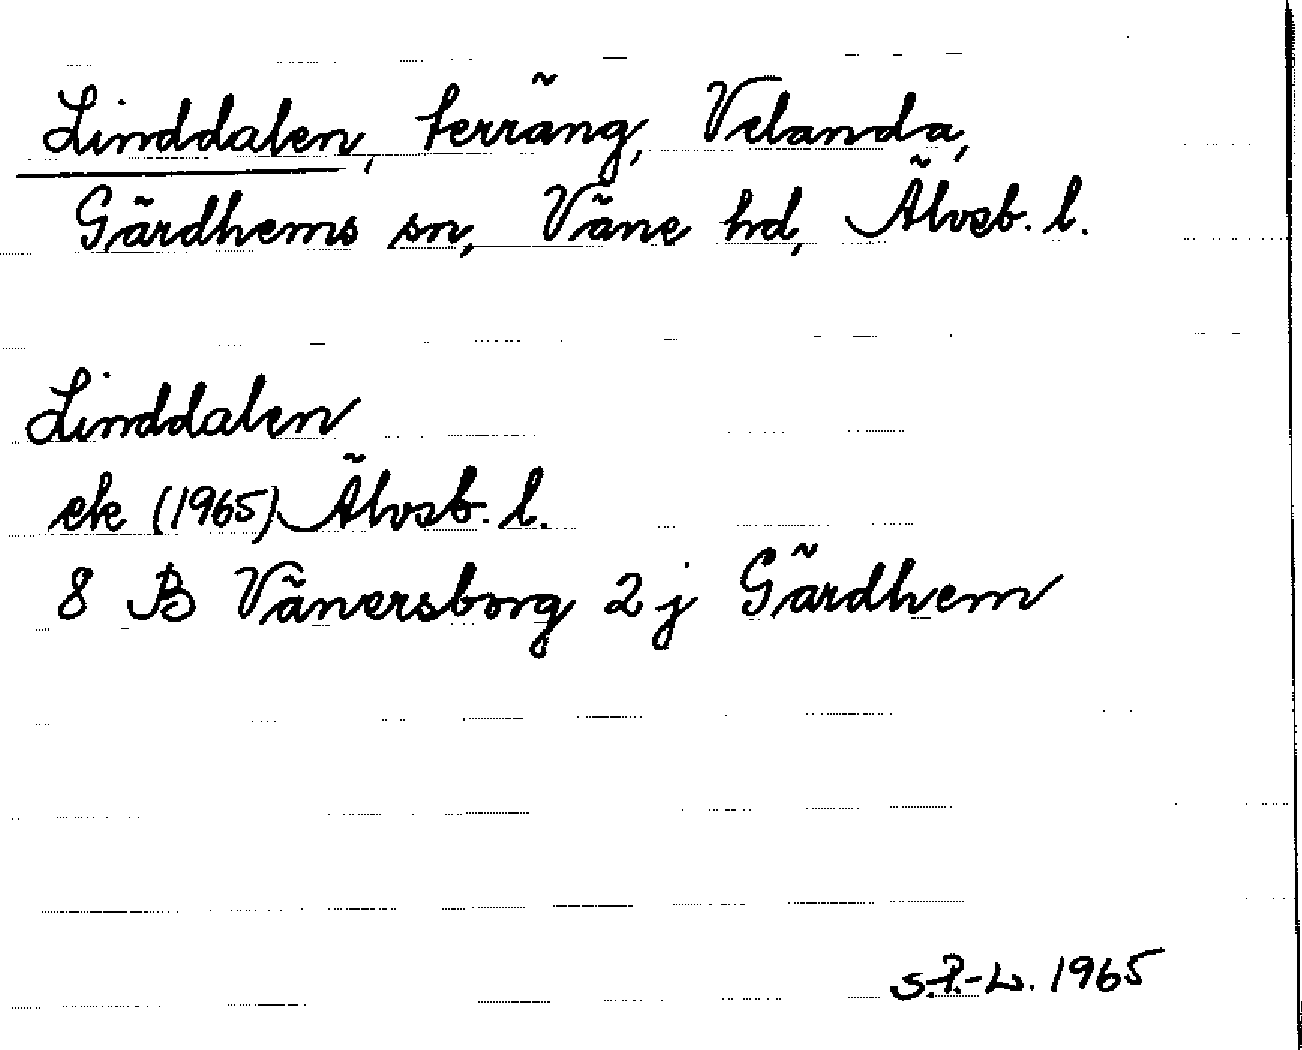 Linddalen, terräng, Velanda,
Gärdhems sn, Väne hd, Älvsb. l.
Linddalen
ek (1965) Älvsb. l.
8 B Vänersborg 2 j Gärdhem
S.P.-L. 1965